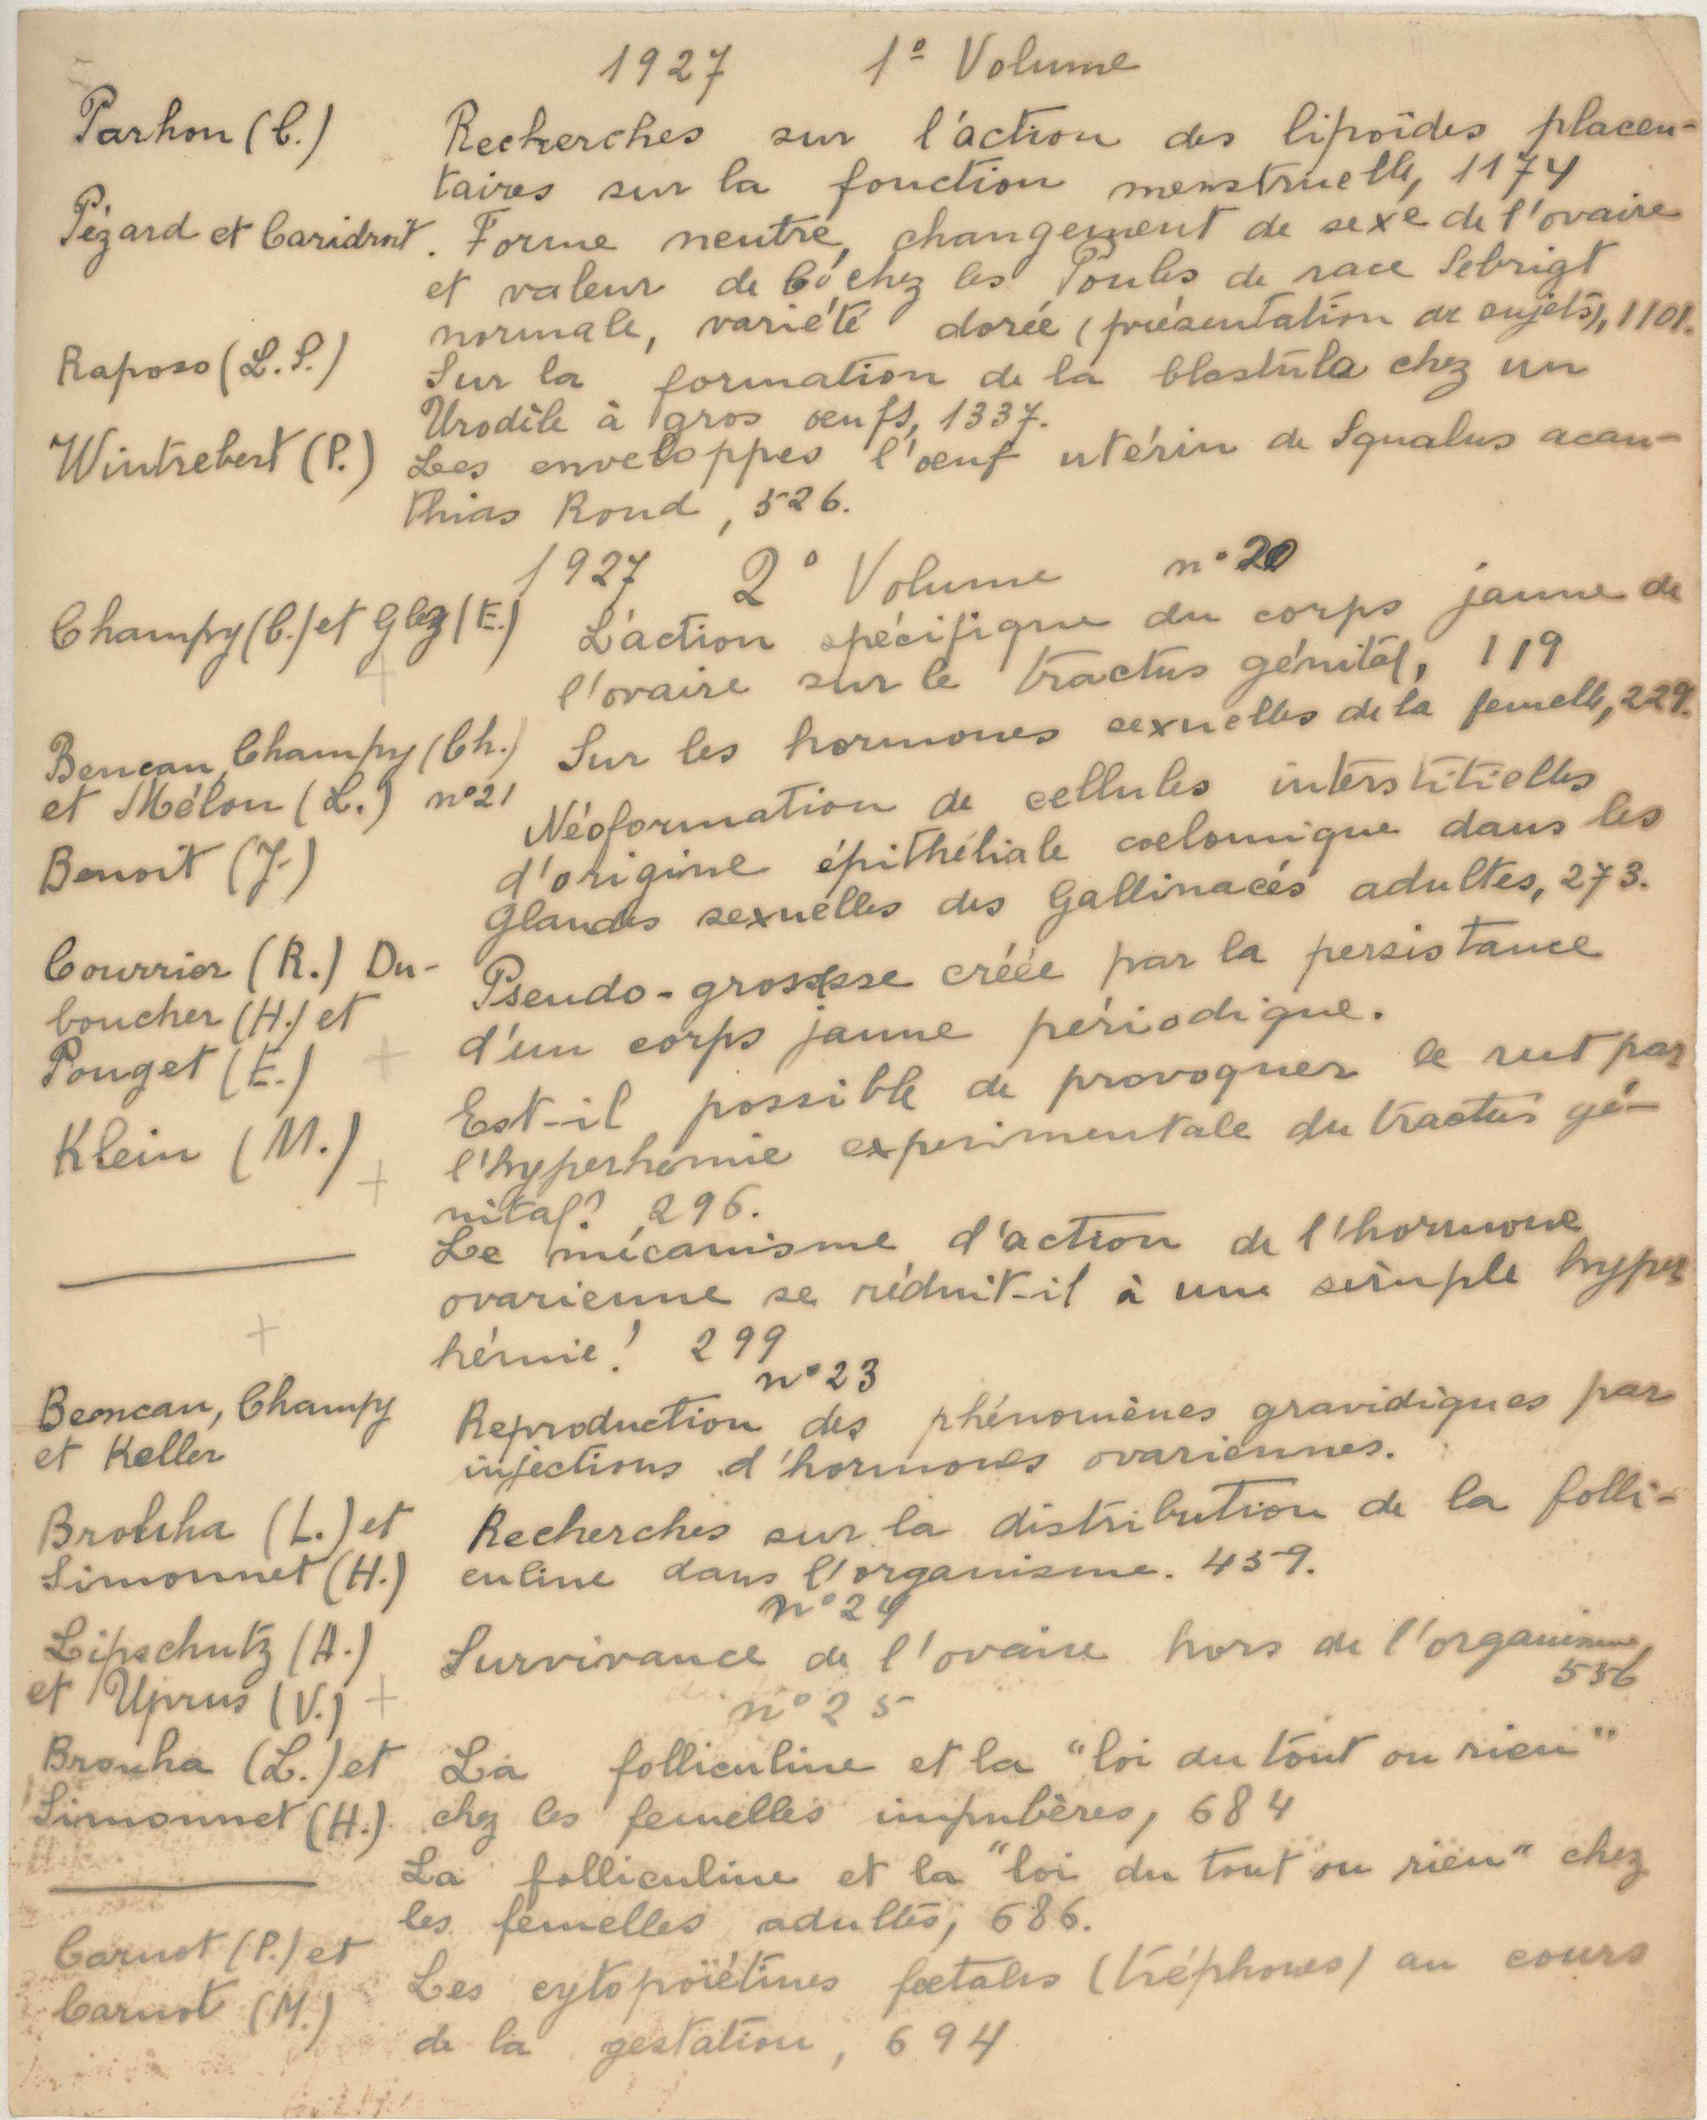 1927 1º Volume
Parhon (C.) Recherches sur l'action des lipoïdes placen-
taires sur la fonction menstruelle, 1174
Pézard et Caridroit. Forme neutre, changement de sexe de l'ovaire
et valeur de chez les Poules de race Sebrigt
normale, variété dorée (présentation de sujets), 1101.
Raposo (L.S.) Sur la formation de la blastula chez un
Urodèle à gros œufs, 1337.
Wintrebert (P.) Les enveloppes l'œuf utérin de Squalus acan-
thias Rond, 526.
1927 2º Volume nº 20
Champy (C.) et Glez (E.) L'action spécifique du corps jaune de
l'ovaire sur le tractus génital, 119
Bencan, Champy (Ch.) Sur les hormones sexuelles de la femelle, 229.
et Mélon (L.) nº 21
Benoit (J.) Néoformation de cellules interstitielles
d'origine épithéliale coelomique dans les
glandes sexuelles des Gallinacés adultes, 273.
Courrier (R.) Du- Pseudo-grossesse créée par la persistance
boucher (H.) et d'un corps jaune périodique.
Pouget (E.)
Klein (M.) Est-il possible de provoquer le rut par
l'hyperhémie experimentale du tractus gé-
nital? 296.
Le mécanisme d'action de l'hormone
ovarienne se réduit-il à une simple hyper
hémie! 299
nº 23
Bencan, Champy Reproduction des phénomènes gravidiques par
et Keller injections d'hormones ovariennes.
Brouha (L.) et Recherches sur la distribution de la folli-
Simonnet (H.) culine dans l'organisme. 459.
nº 24
Lipschutz (A.) Survivance de l'ovaire hors de l'organisme,
et Uprus (V.) 556
nº 25
Brouha (L.) et La folliculine et la "loi du tout ou rien"
Simonnet (H.) chez les femelles impubères, 684
La folliculine et la "loi du tout ou rien" chez
les femelles adultes, 686.
Carnot (P.) et Les cytopoïétines fœtales (tréphones) au cours
Carnot (M.) de la gestation, 694